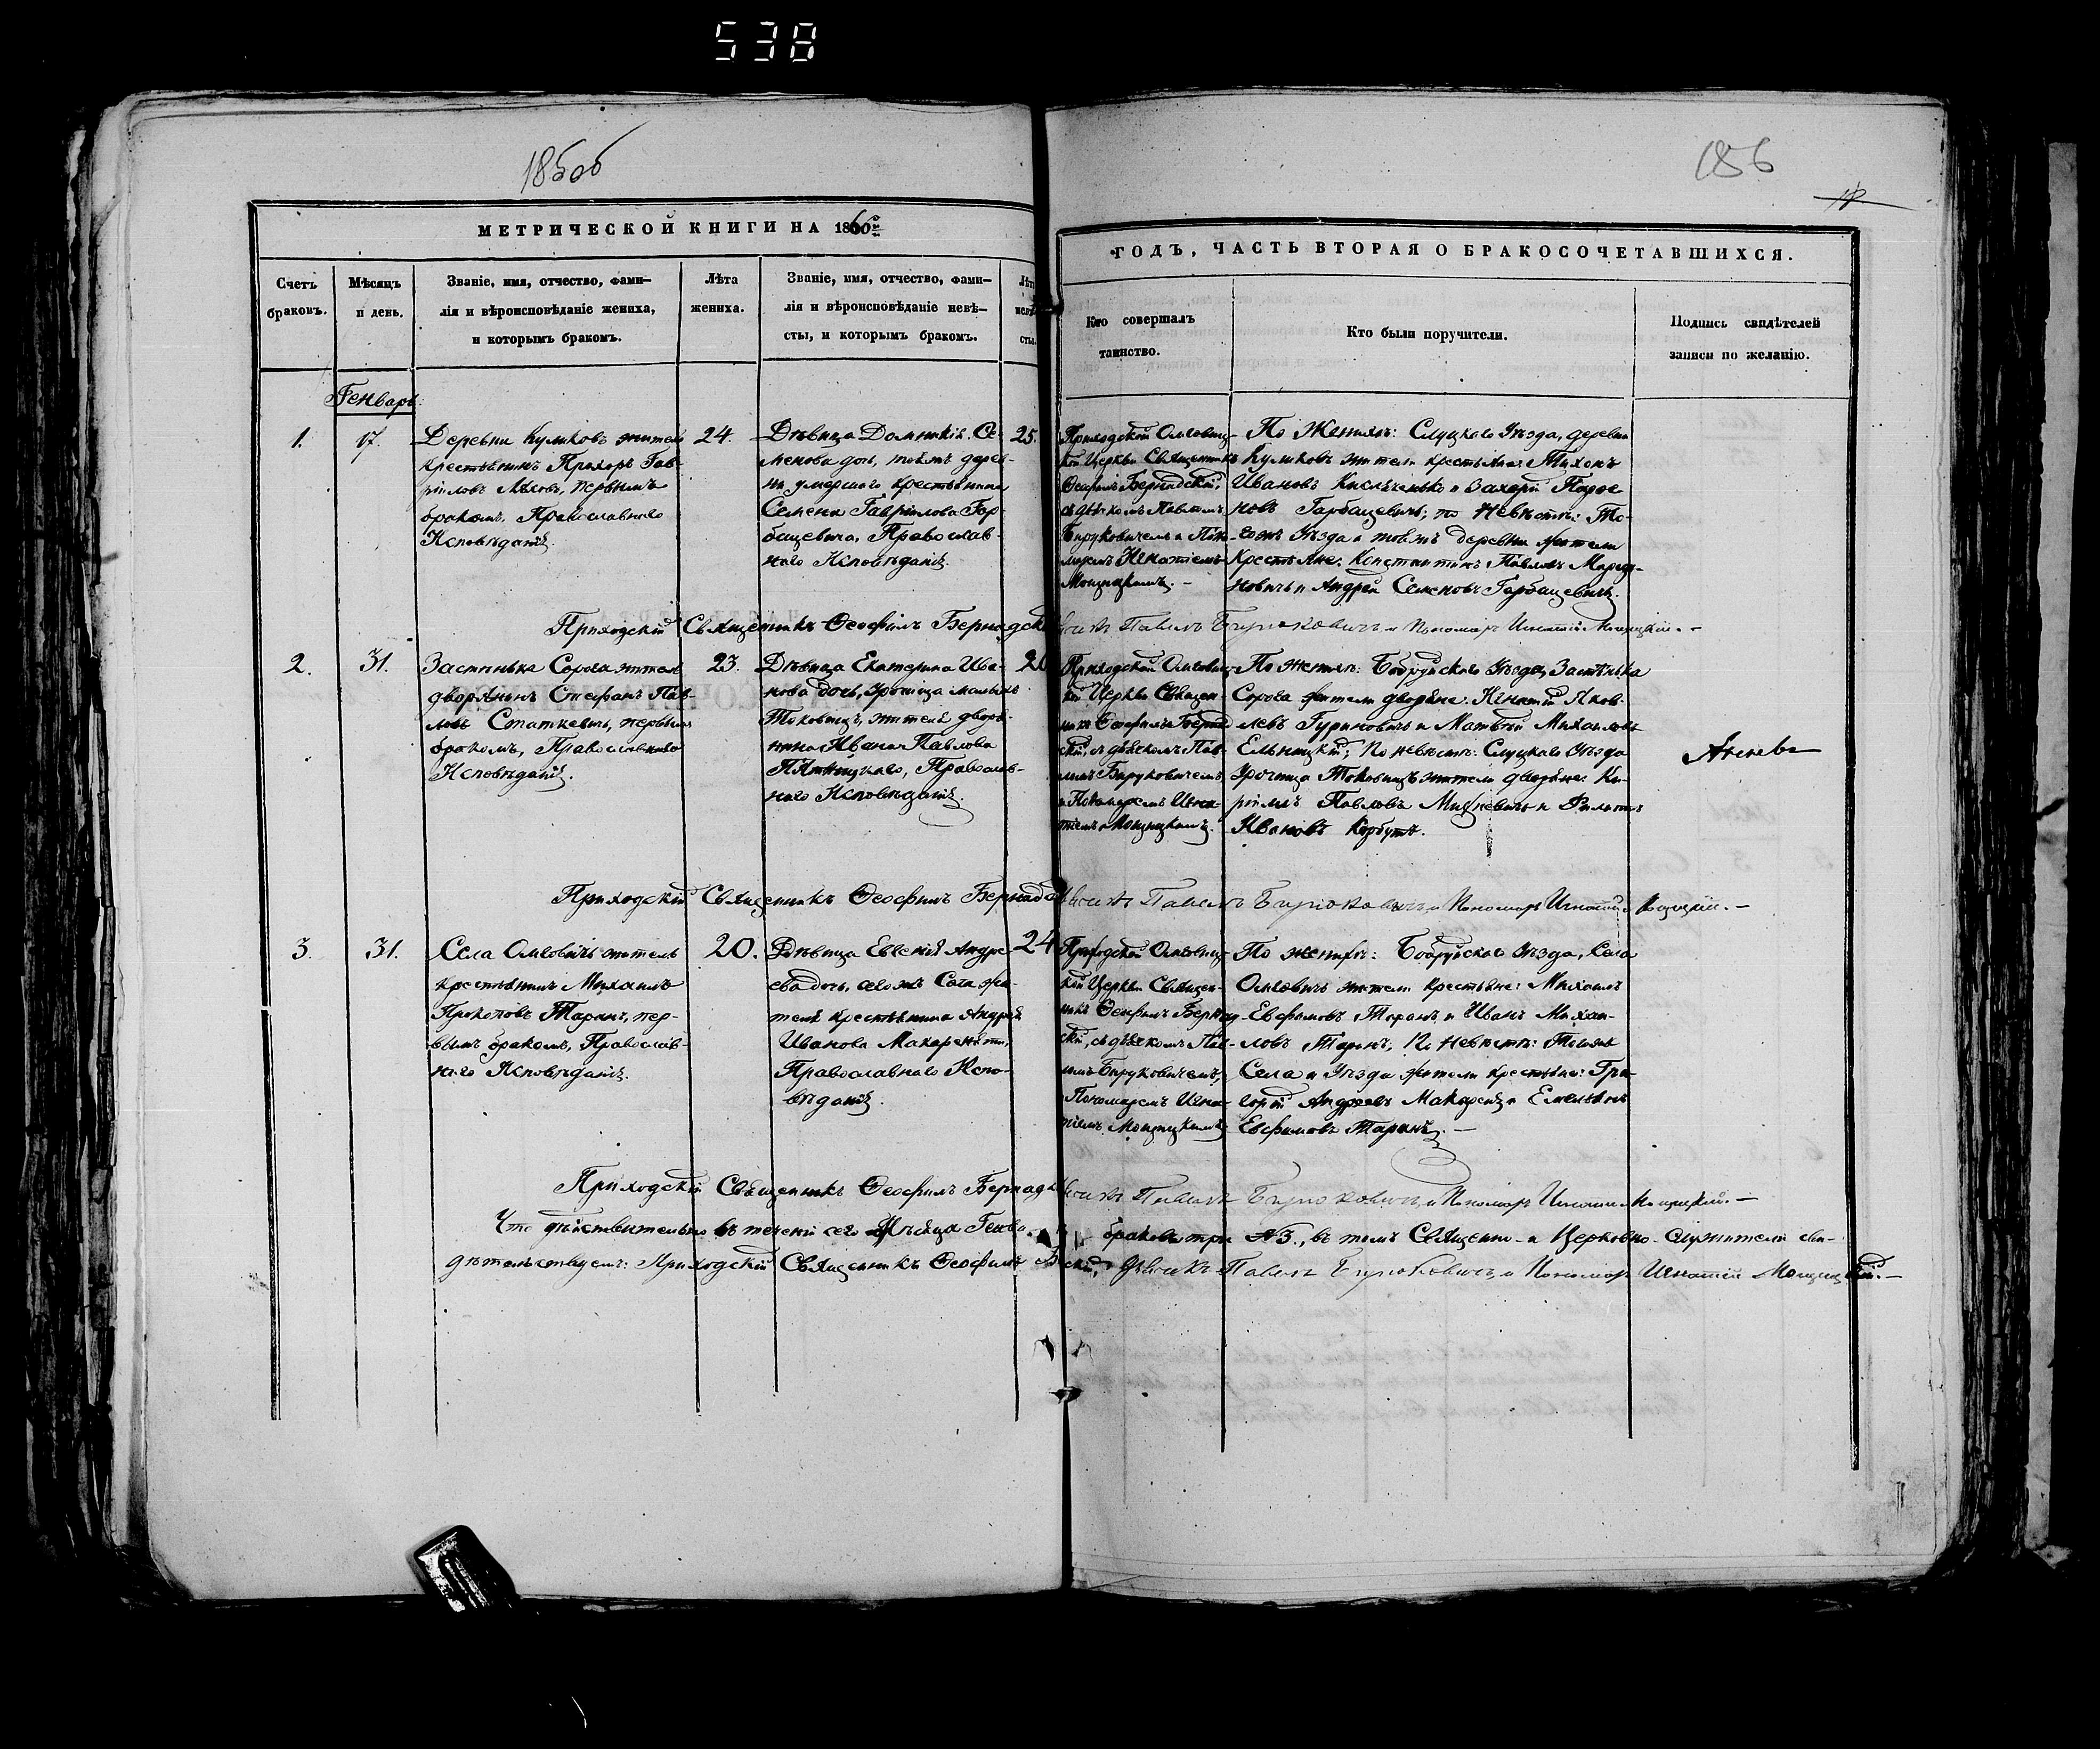 538
185об
186
МЕТРИЧЕСКОЙ КНИГИ НА 1866й
ГОДЪ, ЧАСТЬ ВТОРАЯ О БРАКОСОЧЕТАВШИХСЯ.
Счетъ
браковъ.
Мѣсяцъ
и день.
Званіе, имя, отчество, фами-
лія и вѣроисповѣданіе жениха,
и которымъ бракомъ.
Лѣта
жениха.
Званіе, имя, отчество, фами-
лія и вѣроисповѣданіе невѣ-
сты, и которымъ бракомъ.
Лѣта
невѣ
сты.
Кто совершалъ
таинство.
Кто были поручители.
Подпись свидѣтелей
записи по желанію.
Генварь
1.
17.
Деревни Куликовъ житель
крестьянинъ Прохоръ Гав-
ріиловъ первымъ
бракомъ, Православнаго
Исповѣданія.
24.
Дѣвица Домникія Се-
менова дочь, тойжъ дерев-
ни умершаго крестьянина
Семена Гавріилова Гор
бацевича, Православ-
наго Исповѣданія.
25.
Приходской Омговиц-
кой Церкви Священникъ
Ѳеофилъ Бернадскій,
съ дьячкомъ Павломъ
Бируковичемъ и Поно-
маремъ Игнатіемъ
По Женихѣ: Слуцкаго Уѣзда, деревни
Куликовъ жители крестьяне: Тихонъ
Ивановъ и Захарій
новъ Гарбацевичъ; по Невѣстѣ: То-
гожъ Уѣзда и тойжъ деревни жители
Крестьяне: Константинъ Павловъ
новичъ и Андрей Семеновъ Гарбацевичъ.
Приходскій Священникъ Ѳеофилъ Бернадскій
Павелъ Бируковичъ и Пономарь Игнатій
2.
31.
Застѣнька Сорога житель
дворянинъ Стефанъ Пав-
ловъ Статкевичъ, первымъ
бракомъ, Православнаго
Исповѣданія.
23.
Дѣвица Екатерина Ива-
нова дочь, урочища
жителя дворя-
нина Ивана Павлова
Пятницкаго, Православ-
наго Исповѣданія.
20
Приходской Омговиц-
кой Церкви Священ-
никъ Ѳеофилъ Бернад
скій, съ дьячкомъ Пав-
ломъ Бируковичемъ,
и Пономаремъ Игна-
тіемъ
По женихѣ: Бобруйскаго Уѣзда, Застѣнька
Сорога жители дворяне: Игнатій Яков-
левъ Гуриновичъ и Матвѣй Михайловъ
Ельницкій; По невѣстѣ: Слуцкаго Уѣзда
Урочища жители дворяне: Ки-
ріилъ Павловъ Мицкевичъ и Филиппъ
Ивановъ Корбутъ.
Приходскій Священникъ Ѳеофилъ Бернадскій
Павелъ Бируковичъ и Пономарь Игнатій
3.
31.
Села Омговичъ житель
крестьянинъ Михаилъ
Прокоповъ Таранъ, пер-
вымъ бракомъ, Православ-
наго Исповѣданія.
20.
Дѣвица Евгенія Андре
ева дочь, тогожъ Села жи-
теля крестьянина Андрея
Иванова
Православнаго Испо-
вѣданія.
24
Приходской Омговиц-
кой Церкви Священ-
никъ Ѳеофилъ Бернад-
скій, съ дьячкомъ Пав-
ломъ Бируковичемъ,
Пономаремъ Игна-
тіемъ
По женихѣ: Бобруйскаго Уѣзда, Села
Омговичъ жители крестьяне: Михаилъ
Евфимовъ Таранъ и Иванъ Михаи-
ловъ Таранъ; По невѣстѣ: Тогожъ
Села и Уѣзда жители крестьяне: Гри-
горій Андреевъ и Емельянъ
Евфимовъ Таранъ.
Приходскій Священникъ Ѳеофилъ Бернадскій
Павелъ Бируковичъ и Пономарь Игнатій
Что дѣйствительно въ теченіи сего Мѣсяца Генва
браковъ три №3., въ томъ Священно- и Церковно-служители сви-
дѣтельствуемъ: Приходскій Священникъ Ѳеофилъ
скій, Дьячекъ Павелъ Бируковичъ и Пономарь Игнатій